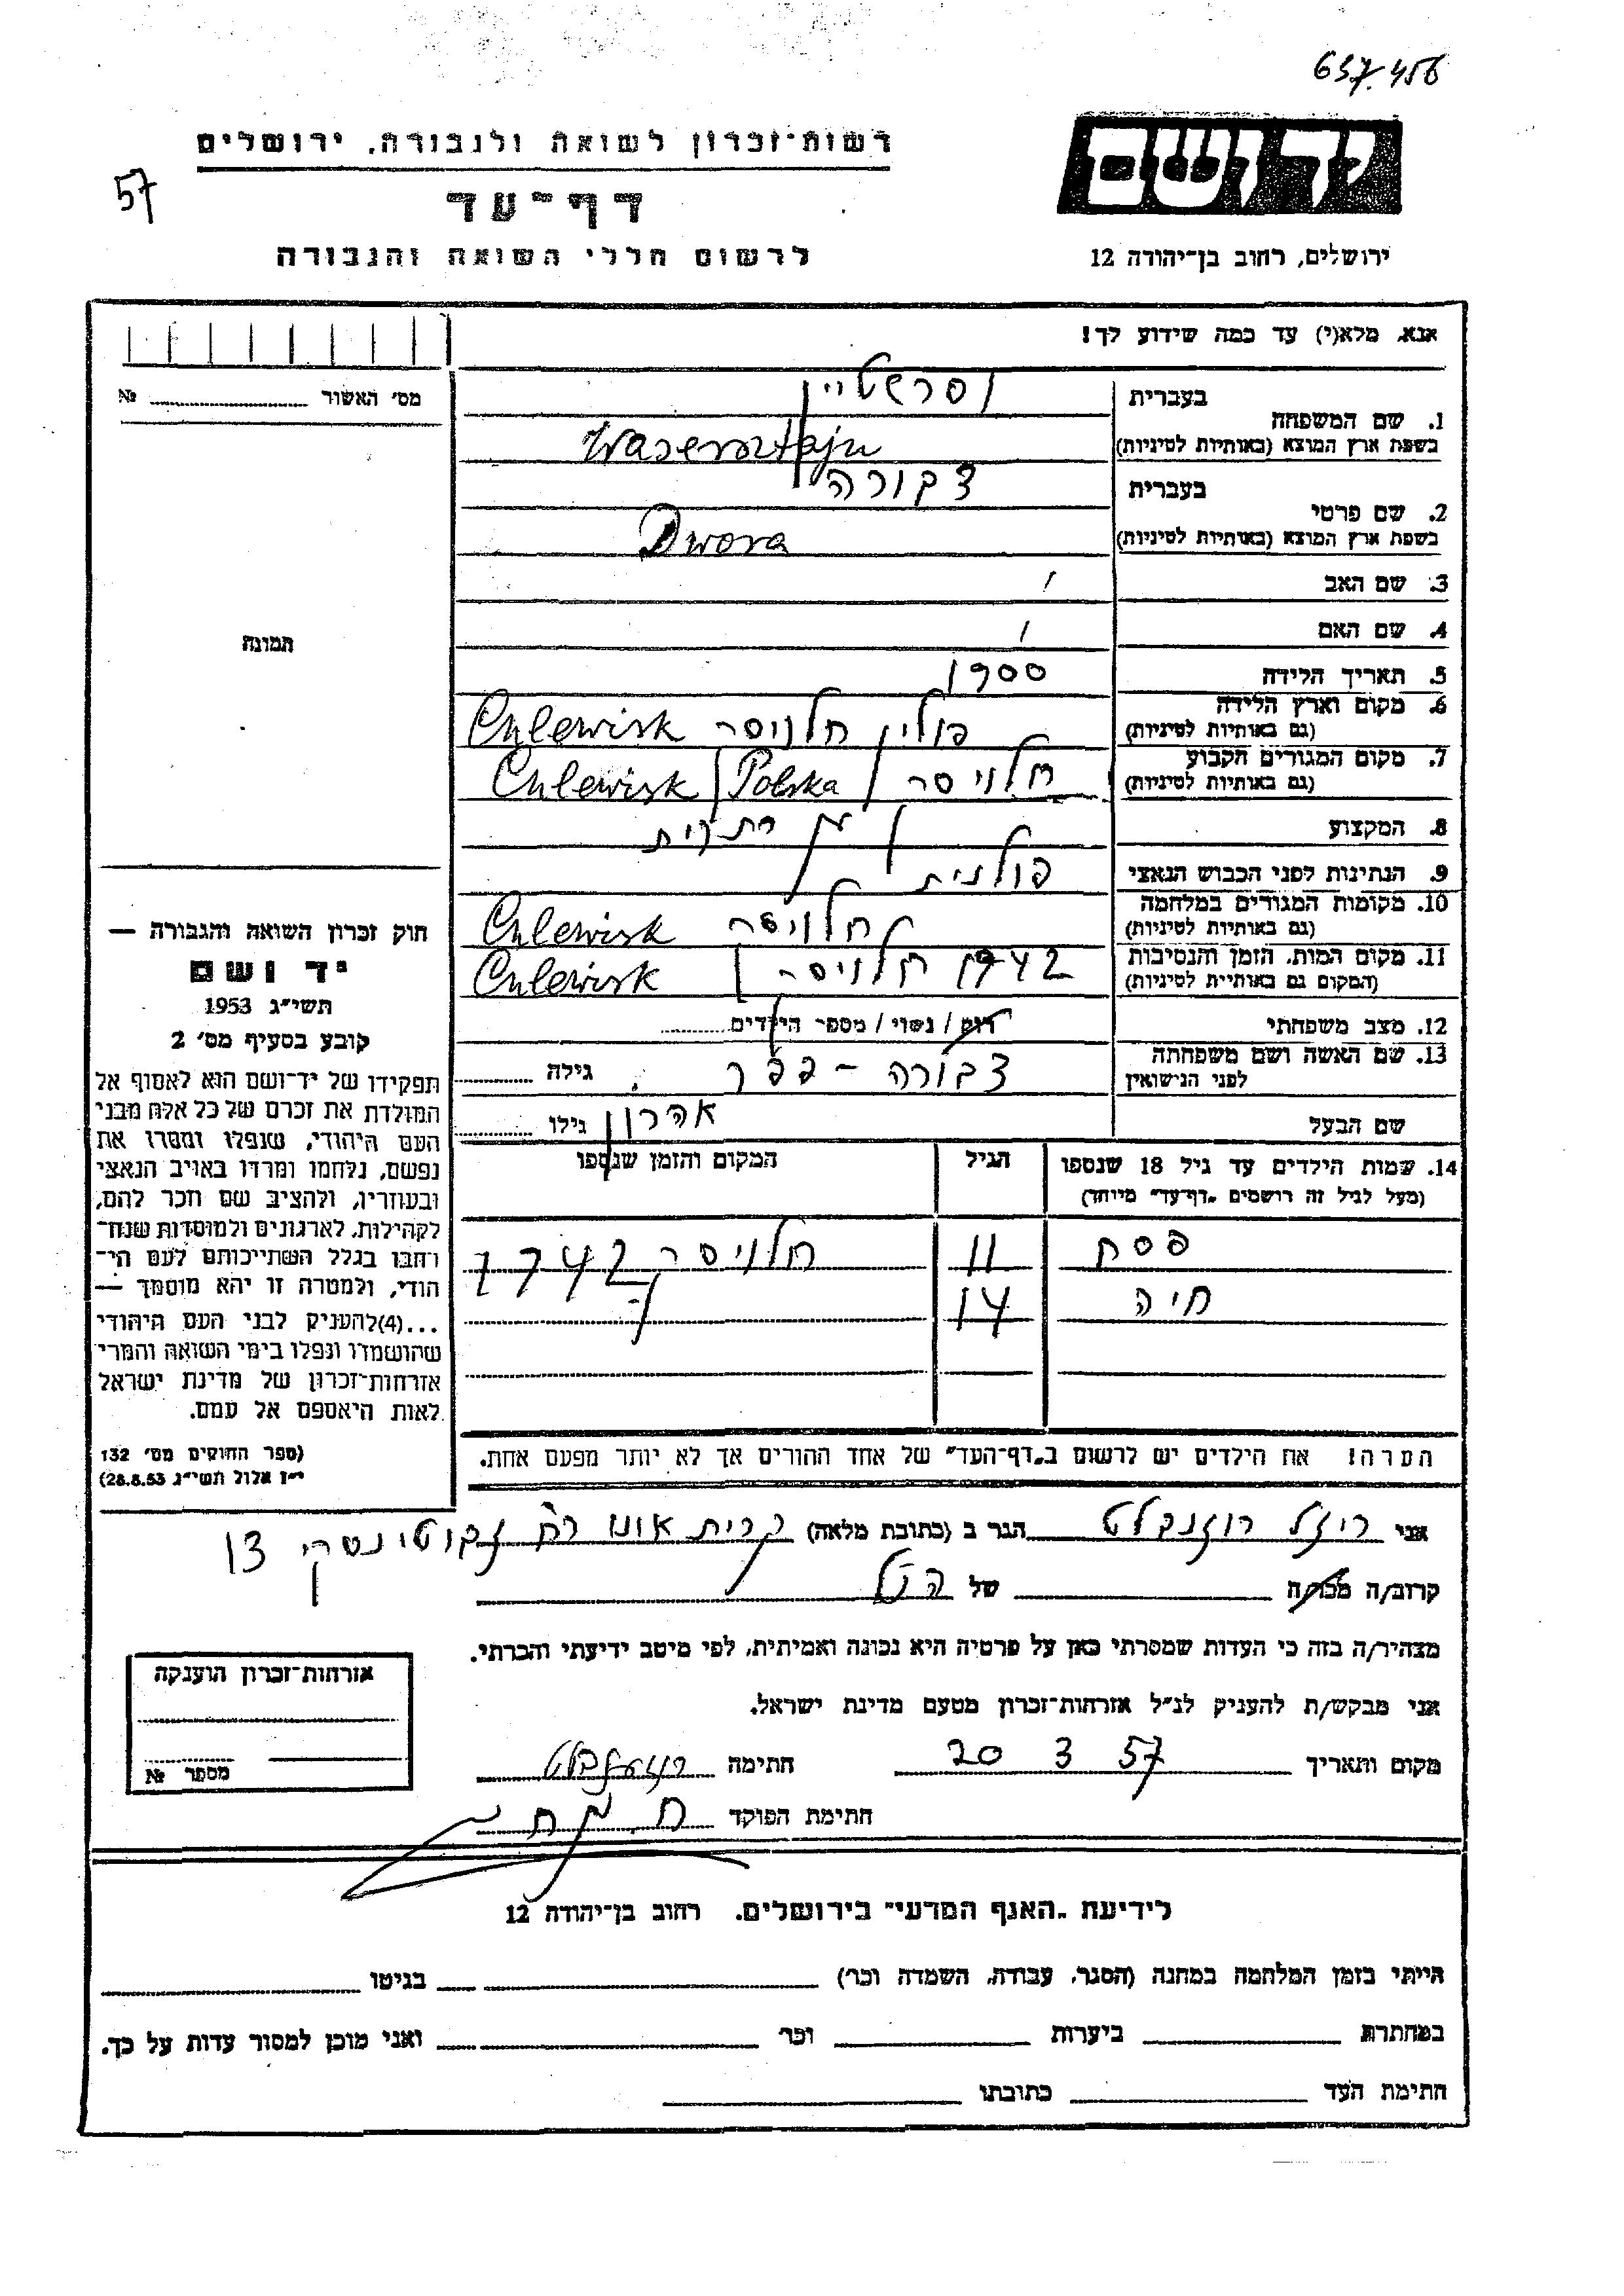 637.456
רשות־זכרון לשואה ולגבורה, ירושלים
57
יד ושם
דף־עד
לרשום חללי השואה והגבורה
ירושלים, רחוב בן־יהודה 12
אנא, מלא(י) עד כמה שידוע לך!
מס׳ האשור № 
בעברית
וסרשטיין
1. שם המשפחה
בשפת ארץ המוצא (באותיות לטיניות) Wasersztajn
בעברית דבורה
2. שם פרטי
בשפת ארץ המוצא (באותיות לטיניות) Dwora
3. שם האב /
4. שם האם /
תמונה
5. תאריך הלידה 1900
6. מקום וארץ הלידה
(גם באותיות לטיניות) פולין חלויסק Chlewisk
7. מקום המגורים הקבוע
(גם באותיות לטיניות) חלויסק Polska Chlewisk
8. המקצוע
9. הנתינות לפני הכבוש הנאצי פולנית
10. מקומות המגורים במלחמה
(גם באותיות לטיניות) חלויסק Chlewisk
11. מקום המות, הזמן והנסיבות
(המקום גם באותיות לטיניות) 1942 חלויסק Chlewisk
12. מצב משפחתי רווק / נשוי / מספר הילדים
13. שם האשה ושם משפחתה
לפני הנישואין דבורה - גילה
שם הבעל אהרון גילו
14. שמות הילדים עד גיל 18 שנספו
(מעל לגיל זה רושמים „דף־עד״ מיוחד)
הגיל
המקום והזמן שנספו
פסח 11 חלויסק 1942
חיה 14 -״-
הערה! את הילדים יש לרשום ב„דף־העד״ של אחד ההורים אך לא יותר מפעם אחת.
חוק זכרון השואה והגבורה —
יד ושם
תשי״ג 1953
קובע בסעיף מס׳ 2
תפקידו של יד־ושם הוא לאסוף אל
המולדת את זכרם של כל אלה מבני
העם היהודי, שנפלו ומסרו את
נפשם, נלחמו ומרדו באויב הנאצי
ובעוזריו, ולהציב שם וזכר להם,
לקהילות, לארגונים ולמוסדות שנח־
רחבו בגלל השתייכותם לעם הי־
הודי, ולמטרה זו יהא מוסמך —
...(4) להעניק לבני העם היהודי
שהושמדו ונפלו בימי השואה והמרי
אזרחות־זכרון של מדינת ישראל
לאות היאספם אל עמם.
(ספר החוקים מס׳ 132
י״ז אלול תשי״ג 28.8.53)
אני רוזנבלט הגר ב (כתובת מלאה) קרית אונו רח ז׳בוטינסקי 13
קרוב/ה מכר/ה של הנ״ל
מצהיר/ה בזה כי העדות שמסרתי כאן על פרטיה היא נכונה ואמיתית, לפי מיטב ידיעתי והכרתי.
אני מבקש/ת להעניק לנ״ל אזרחות־זכרון מטעם מדינת ישראל.
מקום ותאריך 20 3 57 חתימה רוזענבלט
חתימת הפוקד
אזרחות־זכרון הוענקה
מספר №
לידיעת „האגף המדעי״ בירושלים. רחוב בן־יהודה 12
הייתי בזמן המלחמה במחנה (הסגר, עבודה, השמדה וכו׳) בגיטו
במחתרת ביערות וכו׳ ואני מוכן למסור עדות על כך.
חתימת העד כתובתו